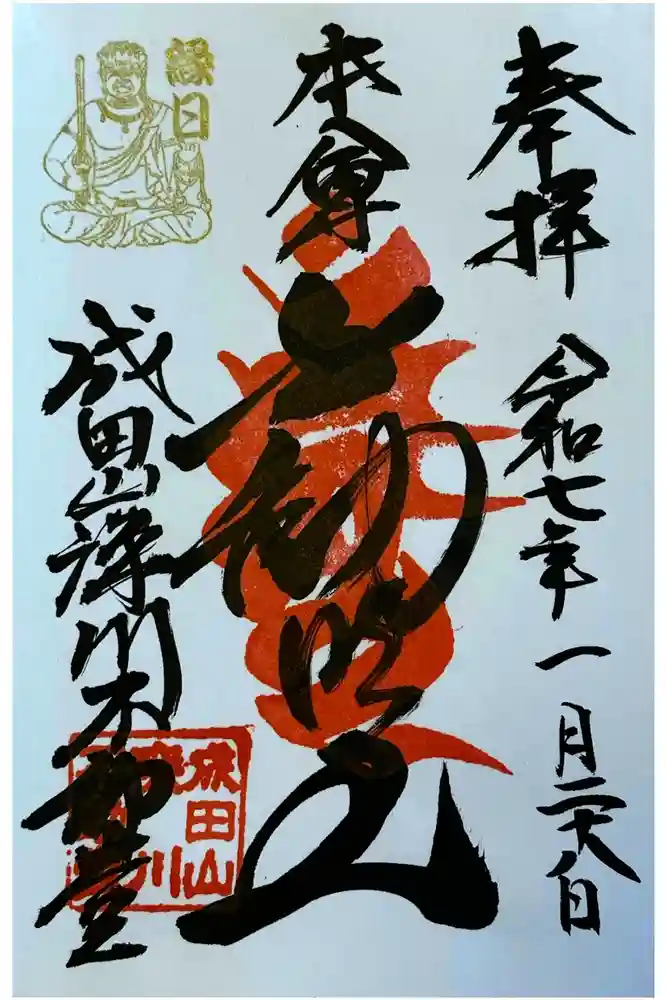 奉拝
令和七年一月二十八日
本尊
不動明王
縁日
成田山深川不動堂
成田山
深川